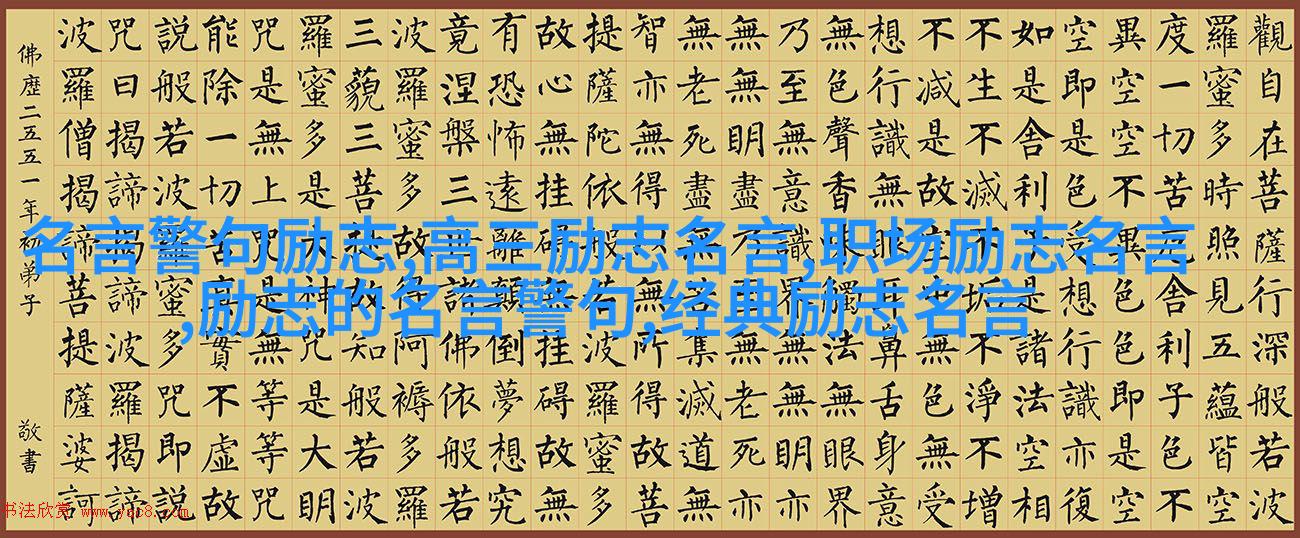 觀自在菩薩行深般若波
羅蜜多時照見五蘊皆空
度一切苦厄舍利子色不
異空空不異色色即是空
空即是色受想行識亦復
如是舍利子是諸法空相
不生不滅不垢不淨不增
不減是故空中無色無受
想行識無眼耳鼻舌身意
無色聲香味觸法無眼界
乃至無意識界無無明亦
無無明盡乃至無老死亦
無老死盡無苦集滅道無
智亦無得以無所得故菩
提薩陀依般若波羅蜜多
故心無挂碍無挂碍故無
有恐怖遠離顛倒夢想究
竟涅槃三世諸佛依般若
波羅蜜多故得阿褥多羅
三藐三菩提故知般若波
羅蜜多是大神咒是大明
咒是無上咒是無等等咒
能除一切苦真實不虛故
說般若波羅蜜多咒即說
咒曰揭諦揭諦波羅揭諦
波羅僧揭諦菩提薩婆訶
佛歷二五五一年初弟子 敬書
名言警句励志,高三励志名言,职场励志名言
,励志的名言警句,经典励志名言
书法欣赏 www.yac8.com